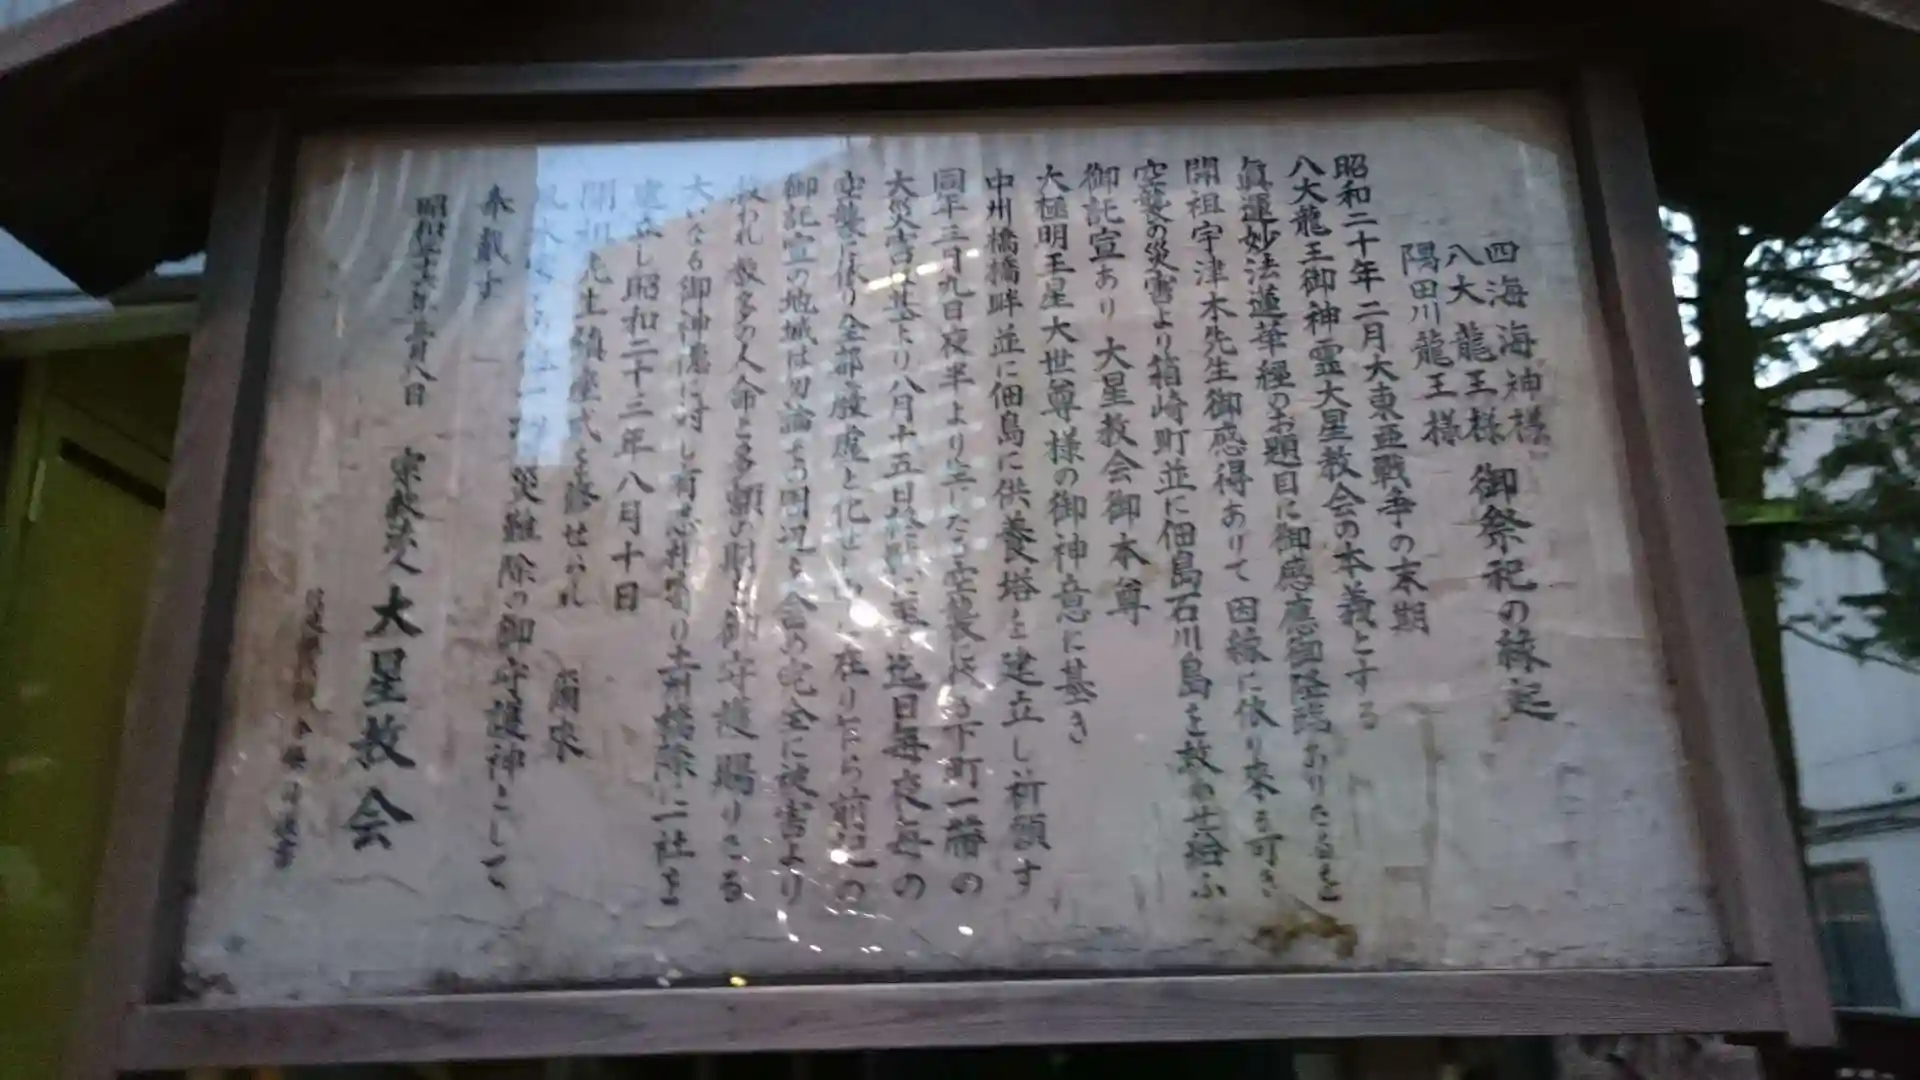 四海海神様
八大龍王様
隅田川龍王様
御祭祀の縁起
昭和二十年二月大東亜戦争の末期
八大龍王御神霊大星教会の本義とする
眞運妙法蓮華経のお題目に御感應御降臨ありたるを
開祖宇津木先生御感得ありて因縁に依り来る可き
空襲の災害より箱崎町並に佃島石川島を救わせ給ふ
御託宣あり 大星教会御本尊
大極明王星大世尊様の御神意に基き
中州橋橋畔並に佃島に供養塔を建立し祈願す
同年三月九日夜半より生じたる空襲に依る下町一帯の
大災害を基より八月十五日終戦に至る迄日毎夜毎の
空襲に依り全部廢虚と化せし中に在り乍ら前記の
御託宣の地域は勿論その周辺も含め完全に被害より
救われ数多の人命と多額の財 御守護賜りたる
大いなる御神徳に対し有志相寄り土州橋際に社を
建立し昭和二十三年八月十日
開祖 鎮座式を修せられ 爾来
災難除の御守護神として
奉載す
昭和 年 月八日
宗教法人 大星教会